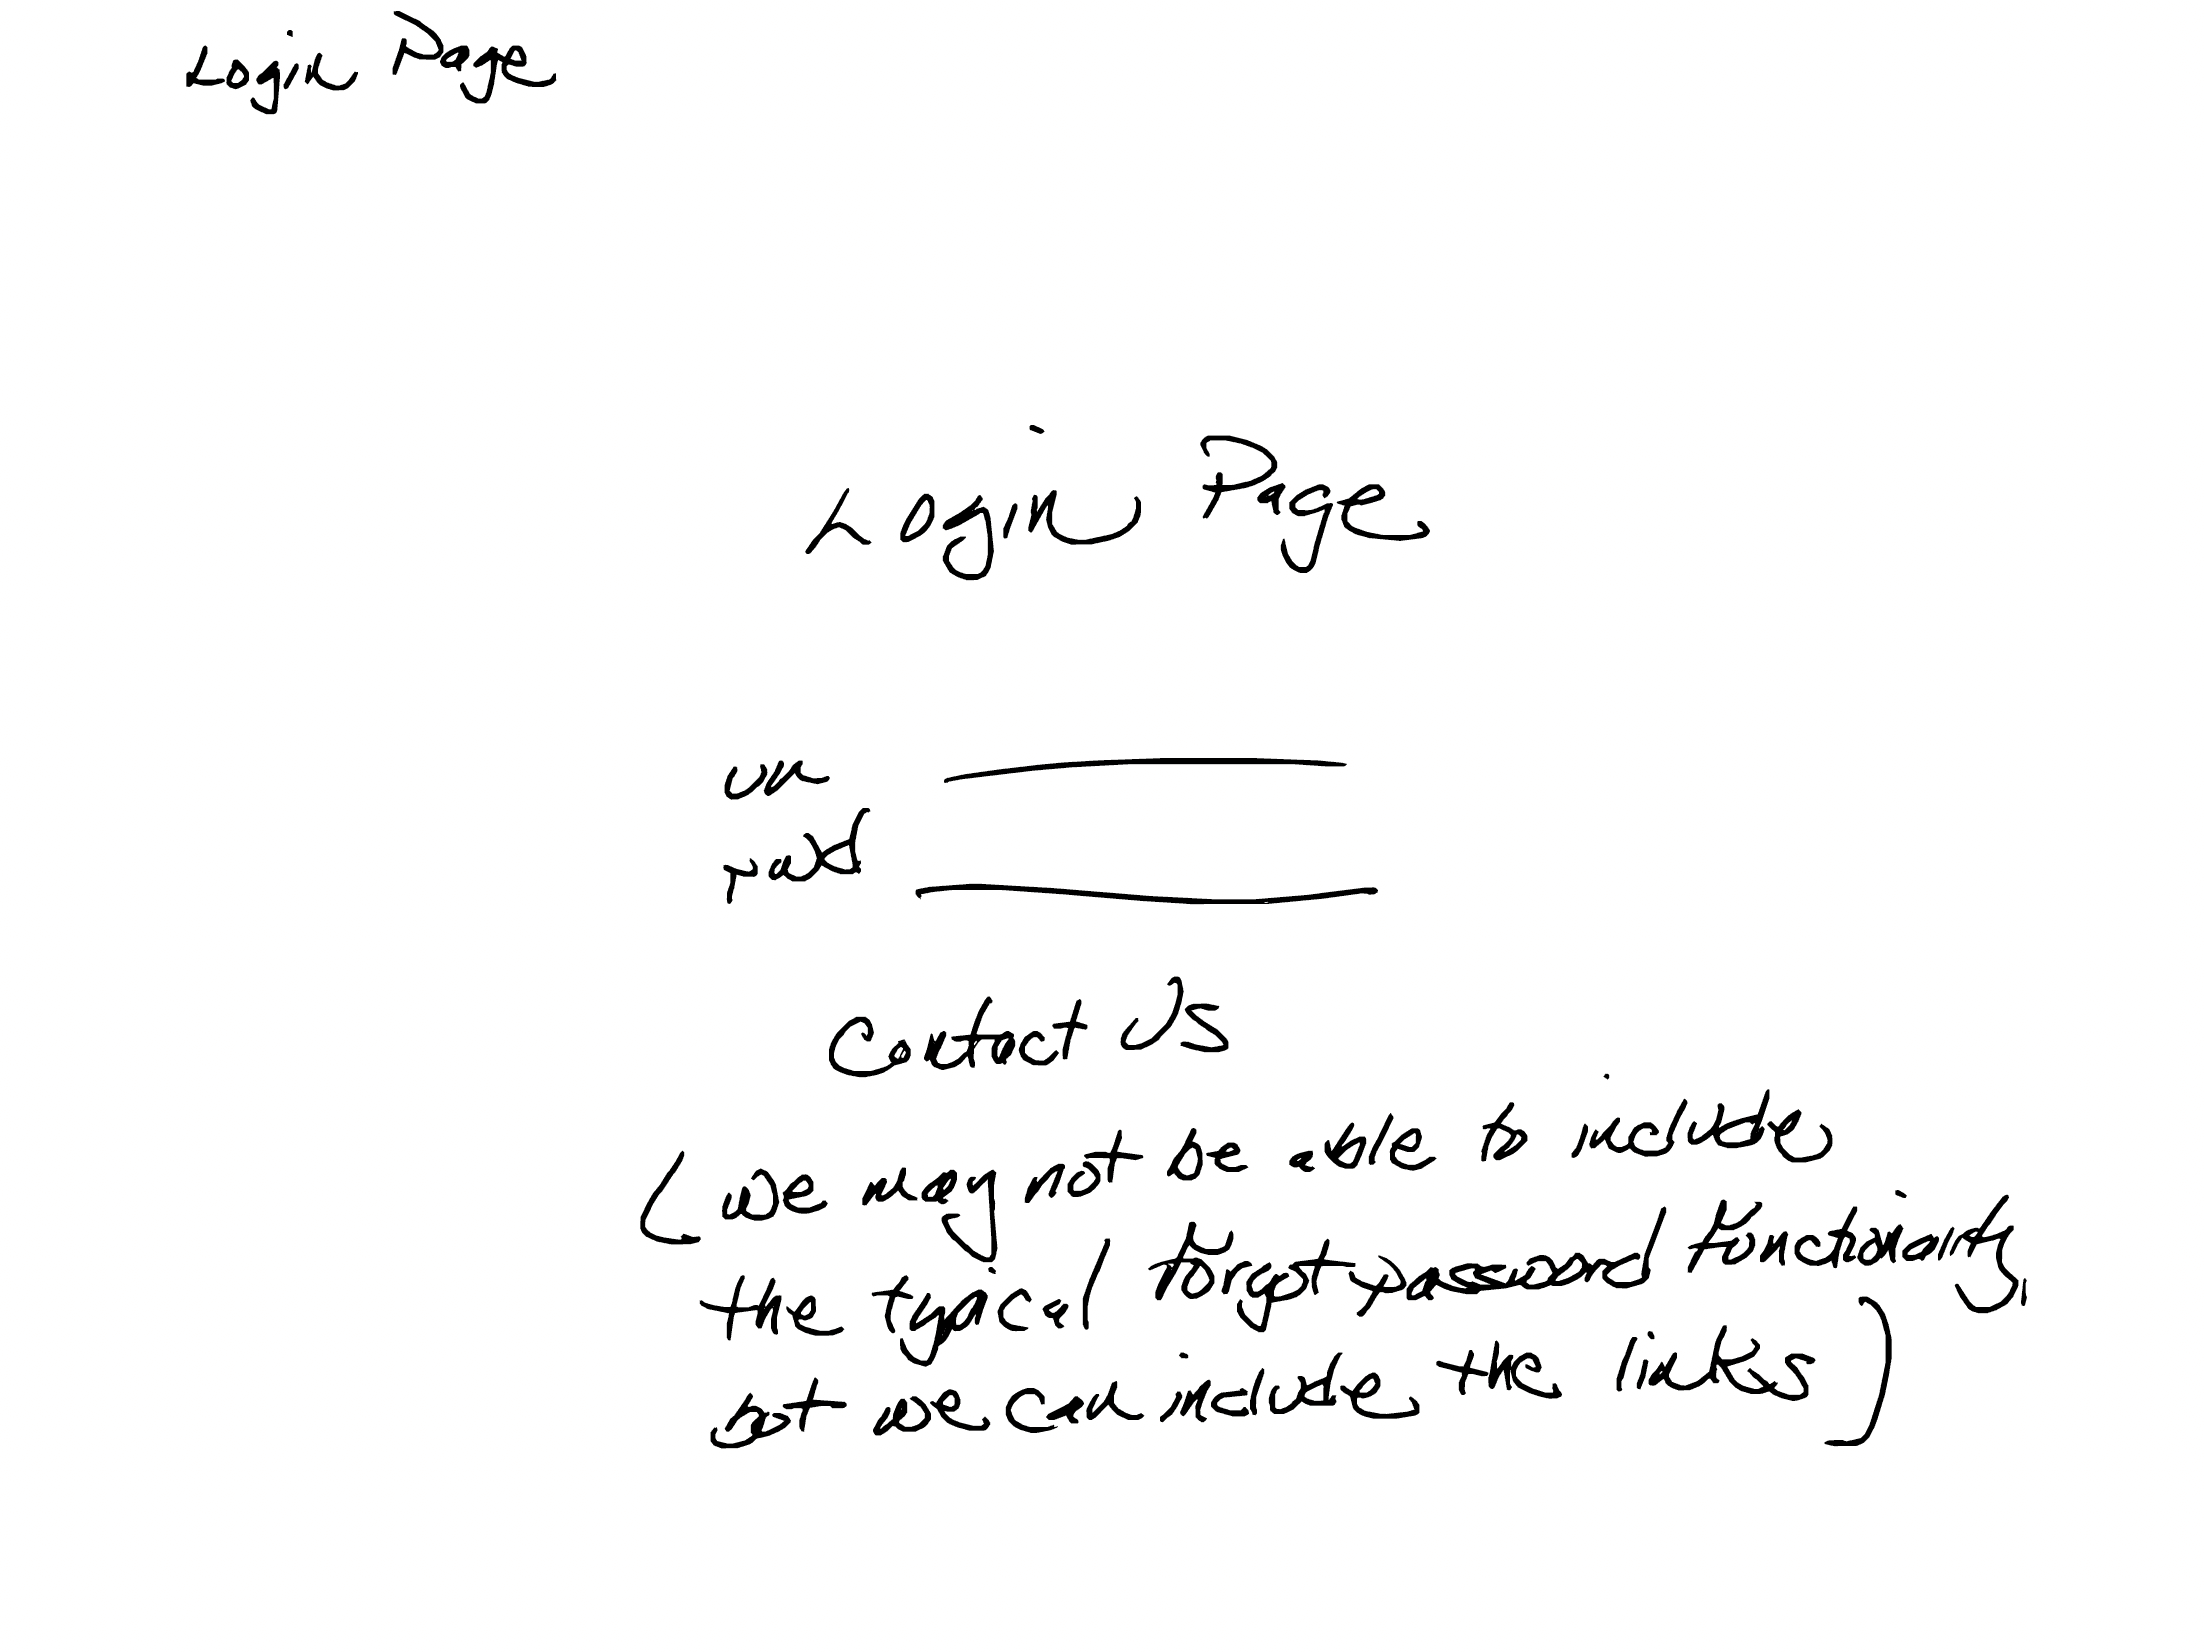 Login Page
Login Page
un
pwd
Contact Us
(We may not be able to include
the typical forgot password functionality,
but we can include the links)